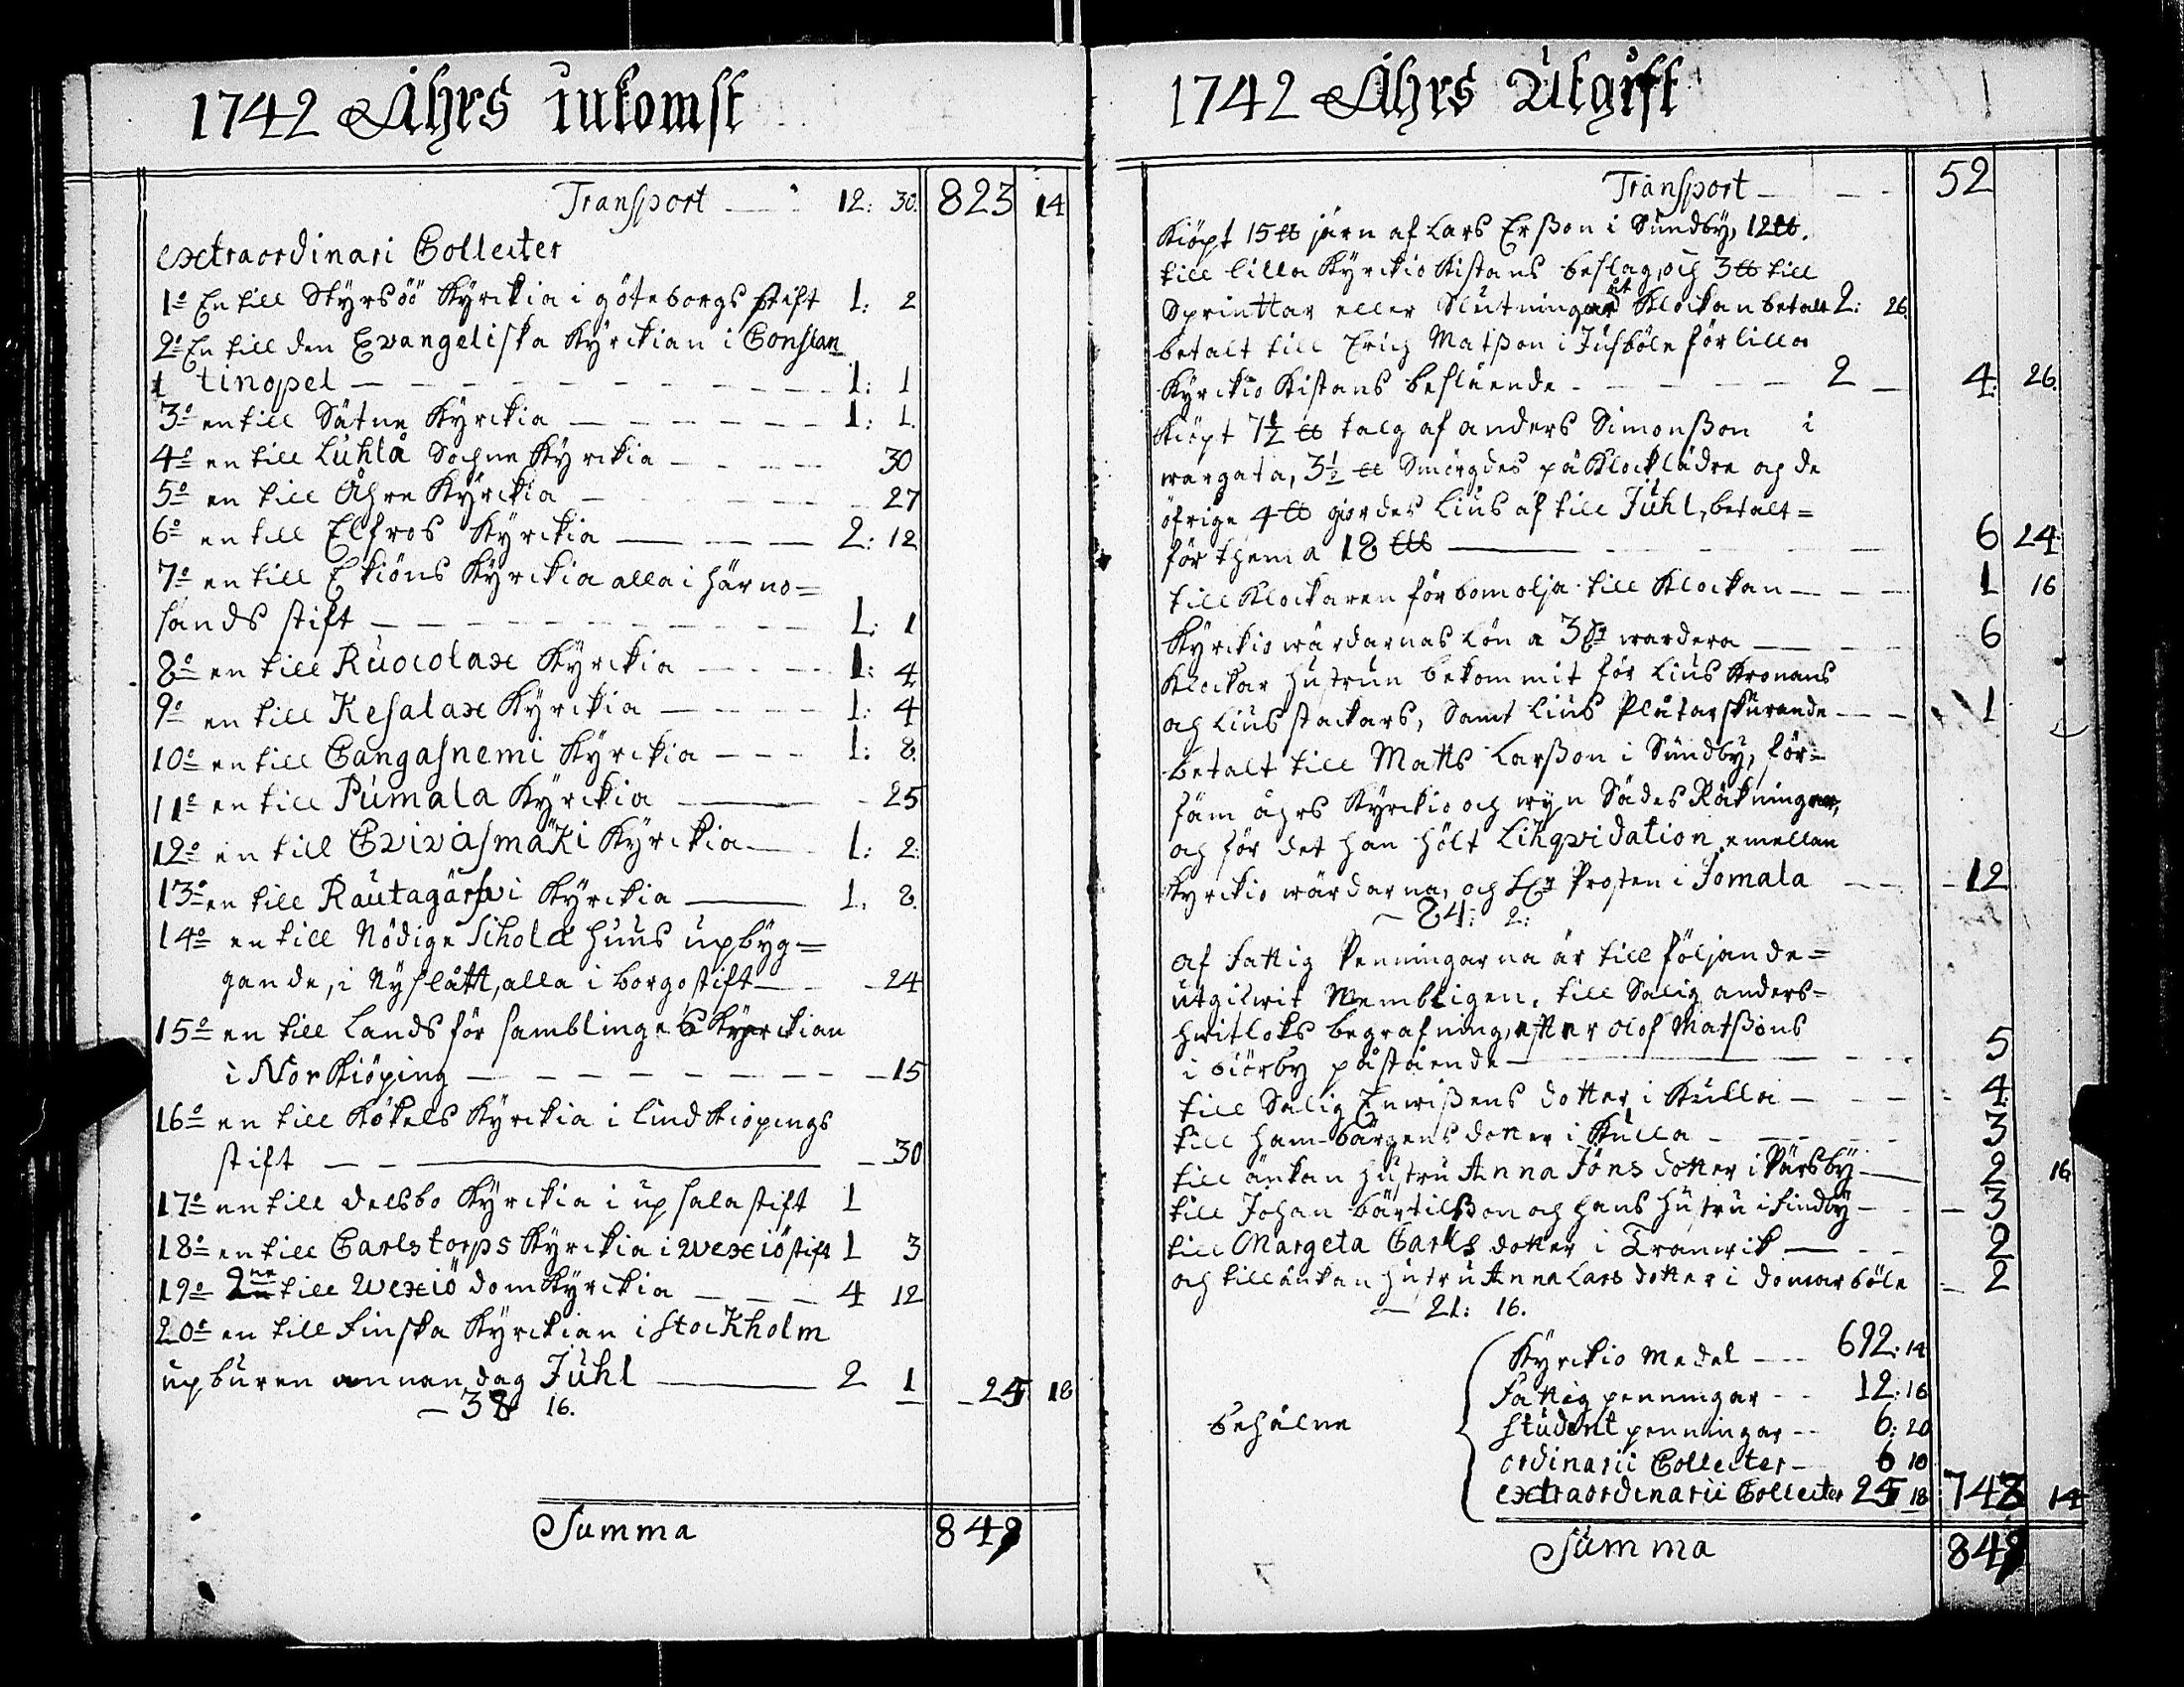 1742 Åhrs inkomst
Transport — 12: 30. 823 14
extraordinari Collecter
1o En till Styrsöö Kyrckia i göteborgs stift 1: 2
2o En till den Evangeliska Kyrckian i Constan
tinopel — 1: 1
3o en till Sätne Kyrckia — 1: 1.
4o en till Luhlå Sochne Kyrckia — 30
5o en till Åhre Kyrckia — 27
6o en till Elfros Kyrckia — 2: 12
7o en till Ekiöns Kyrckia alla i härno=
sands stift — 1: 1
8o en till Ruocolax Kyrckia — 1: 4
9o en till Kesalax Kyrckia — 1: 4
10o en till Cangasnemi Kyrckia — 1: 8.
11o en till Pumala Kyrckia — 25
12o en till Cvivasmäki Kyrckia — 1: 2.
13o en till Rautagärfwi Kyrckia — 1. 8.
14o en till Nödige Schole huus upbyg=
gande, i Nyslått, alla i borgo stift — 24
15o en till Lands församblinges Kyrckian
i Norkiöping — 15
16o en till Kökels Kyrckia i lindkiöpings
stift — 30
17o en till delsbo Kyrckia i upsala stift 1
18o en till Carlstorps Kyrckia i wexiö stift 1 3
19o 2ne till wexiö domkyrckia — 4 12
20o en till finska Kyrckian i Stockholm
upburen annan dag Juhl — 2 1 — 25 18
— 38 16.
Summa 849
1742 Åhrs Utgift
Transport — 52
Kiöpt 15 ℔ järn af Lars Erßon i Sundby, 12 ℔.
till lilla Kyrckio Kistans beslag, och 3 ℔ till
Sprinttar eller Slutningar åt Klockan betalt 2: 26.
betalt till Erich Matßon i Jusböle för lilla
Kyrckio Kistans beslående — 2 — 4: 26.
Kiöpt 7½ ℔ talg af anders Simonßon i
wargata, 3½ ℔ Smörgdes på Klocklädre och de
öfrige 4 ℔ giordes Lius af till Juhl, betalt=
för them a 18 — 6 24
till Klockaren för bomolja till Klockan — 1 16
Kyrckio wärdarnas Lön a 3 wardera — 6
Klockar hustrun bekommit för Lius Kronans
och Lius stackars, Samt Lius Plåtar skurande — 1
betalt till Matts Larßon i Sundby, för=
fäm åhrs Kyrckio och wijn Sädes Räkningar,
och för det han hölt Likqvidation emellan
Kyrckio wärdarna, och H:r Prosten i Jomala — 12
— 84: 2:
af Fattig Penningarna är till följande=
utgifwit Nembligen, till Salig anders=
hwitloks begrafning, efter olof Matßons
i Biörby påstående — 5
till Salig Enwißens dotter i Kulla — 4
till ham-bärgens dotter i Kulla — 3
till änkan hustru Anna Jöns dotter i Pärsby — 2 16
till Johan bärtilßon och hans hustru i findby — 3
till Margeta Carls dotter i Tranwik — 2
och till änkan hustru Anna Lars dotter i domarböle — 2
— 21: 16.
behålne
Kyrckio Medel — 692: 14
Fattig penningar — 12: 16
Student penningar — 6: 20
ordinarii Collecter — 6 10
extraordinarii Collecter 25 18 743 14
Summa 849